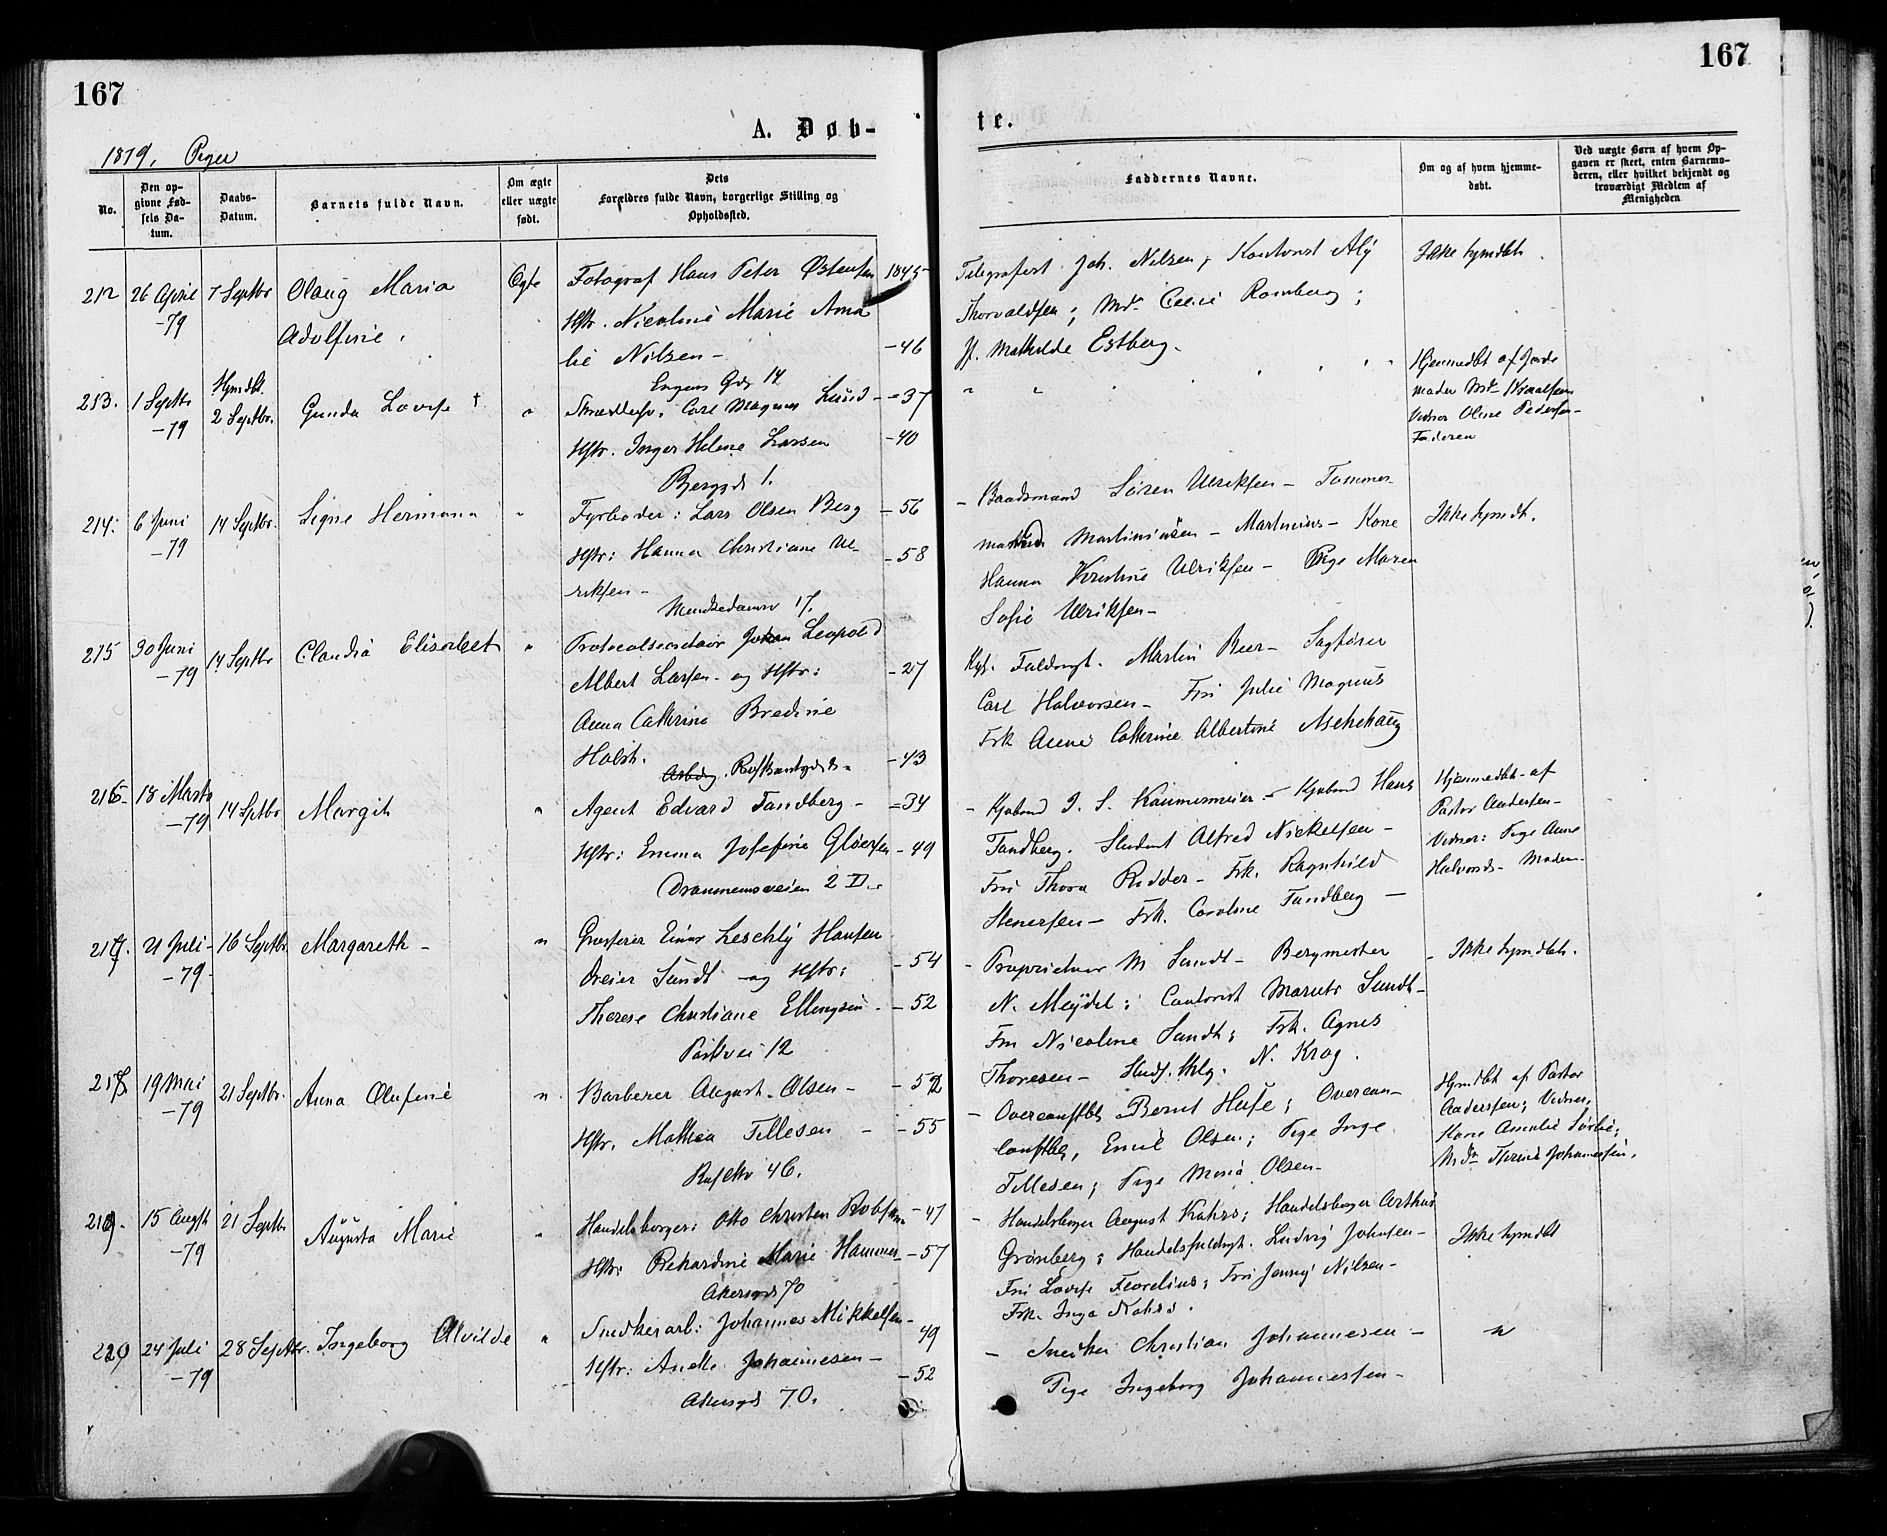 167
167
A. Døb-
te.
1879, Piger
No.
Den op-
givne Fød-
sels Da-
tum.
Daabs-
Datum.
Barnets fulde Navn.
Om ægte
eller uægte
født.
Dets
Forældres fulde Navn, borgerlige Stilling og
Opholdssted.
Faddernes Navne.
Om og af hvem hjemme-
døbt.
Ved uægte Børn af hvem Op-
gaven er skeet, enten Barnemo-
deren, eller hvilket bekjendt og
troværdigt Medlem af
Menigheden
212 26 April 7 Septbr Olaug Maria Egte Fotograf Hans Peter Østensen 1845
-79 Adolfine. Hstr. Nicoline Marie Ama
lie Nilsen - -46
Telegrafist Joh. Nilsen; Kontorist Alf
Thorvaldsen; Md. Romberg;
Jf. Mathilde Estberg.
Ikke hjmdbt.
Engens Gd. 14
213. 1 Septbr Hjmdbt. Gunda Lovise † " Carl Magnus Lund - -37
-79 2 Septbr. Hstr. Inger Helene Larsen -40
" "
Hjemmedbt af Jorde
moder Md.
Vidner Oline Pedersen-
Faderen
Berggd. 1.
214. 6 Juni 14 Septbr. Signe Hermana " Fyrbøder: Lars Olsen Berg -56
-79 Hstr: Hanna Christiane Ul- -58
riksen -
- Baadsmand Søren Ulriksen - Tømmer-
mand Martiniusen - Kone
Hanna Kristine Ulriksen - Pige Maren
Sofie Ulriksen -
Ikke hjmdt.
Munkedamsv 17.
215 30 Juni 14 Septbr Claudia Elisabet " Johan Leopold
-79 Albert Larsen - og Hstr: -27
Anna Cathrine Bredine
Holst. -43
Martin Beer - Sagfører
Carl Halvorsen - Fru Julie Magnus
Frk Anna Cathrine Albertine Aschehaug
216 18 Marts 14 Sptbr Margit " Agent Edvard Tandberg - -34
-79 Hstr: Emma Josefine Gløersen -49
Drammensveien 2 D.
- Kjøbmd J. S. - Kjøbmd Hans
Tandberg. Student Alfred Nickelsen -
Fru Thora Ridder - Frk. Ragnhild
Stenersen - Frk. Caroline Tandberg -
Hjemmedbt - af
Pastor Andersen -
Vidner: Pige Anne
Halvords - Moder.
217. 21 Juli - 16 Septbr. Margareth - " Grosserer Einar Leschly Hansen
-79. Dreier Sundt - og Hstr: -54
Therese Christiane Ellingsen - -52
Parkvei 12
- Proprietær M Sundt - Bergmester
N. Meydel; Contorist Sundt -
Fru Nicoline Sundt; Frk. Agnes
Thoresen - N. Krog.
- Ikke hjmdbt.
218. 19 Mai 21 Septbr. Anna Olufine " Barberer August. Olsen - -52
-79 Hstr. Mathea Tellesen - -55
46.
- Bernt Huse; Overcon-
Emil Olsen; Pige Inge
Tellesen; Pige Maria Olsen -
Hjmdbt af Pastor
Anderssen; Vidner,
Kone Amalie
Md. Johannessen.
219. 15 Augst 21 Septbr Augusta Marie " Handelsborger: Otto Christen -47
-79 Hstr: Rikardine Marie Hammer -57
Akersgd 70
- Handelsborger August Kahrs; Handelsborger Arthur
Grønberg; Handelsfuldmgt. Ludvig Johnsen -
Fru Lovise; Fru Jenny Nilsen -
Frk. Inga Kahrs.
Ikke hjmdbt
220 24 Juli 28 Septbr. Ingeborg Alvilde " Snedkerarb: Johannes Mikkelsen - 49
-79 Hstr. Anette Johannesen - -52
Akersgd 70.
- Snedker Christian Johannesen -
Pige Ingeborg Johannessen -
"